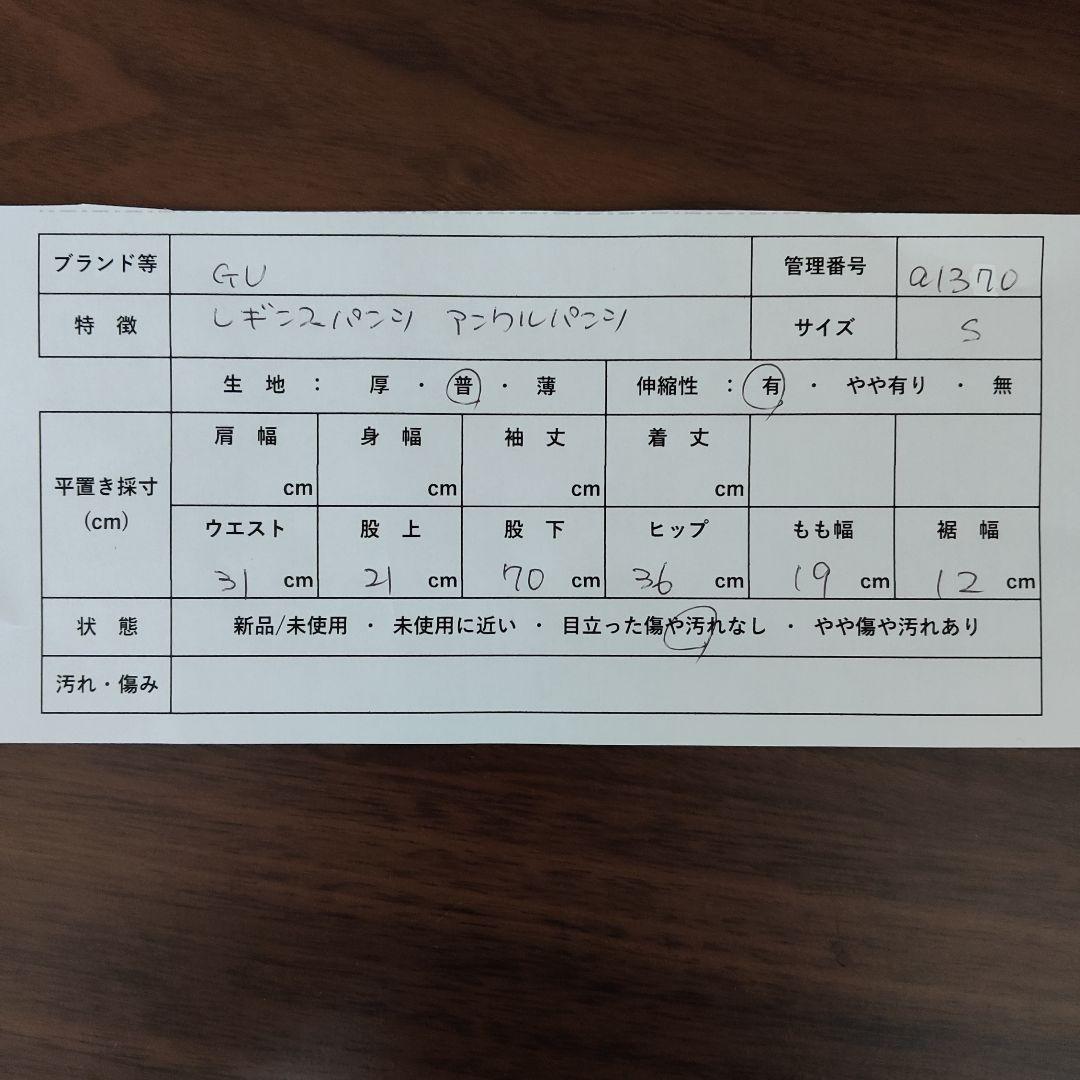 ブランド等 GU 管理番号 a1370
特 徴 レギンスパンツ アンクルパンツ サイズ S
生 地 ： 厚 ・ 普 ・ 薄 伸縮性 ： 有 ・ やや有り ・ 無
平置き採寸 (cm)
肩 幅 cm 身 幅 cm 袖 丈 cm 着 丈 cm
ウエスト 31 cm 股 上 21 cm 股 下 70 cm ヒップ 36 cm もも幅 19 cm 裾 幅 12 cm
状 態 新品/未使用 ・ 未使用に近い ・ 目立った傷や汚れなし ・ やや傷や汚れあり
汚れ・傷み